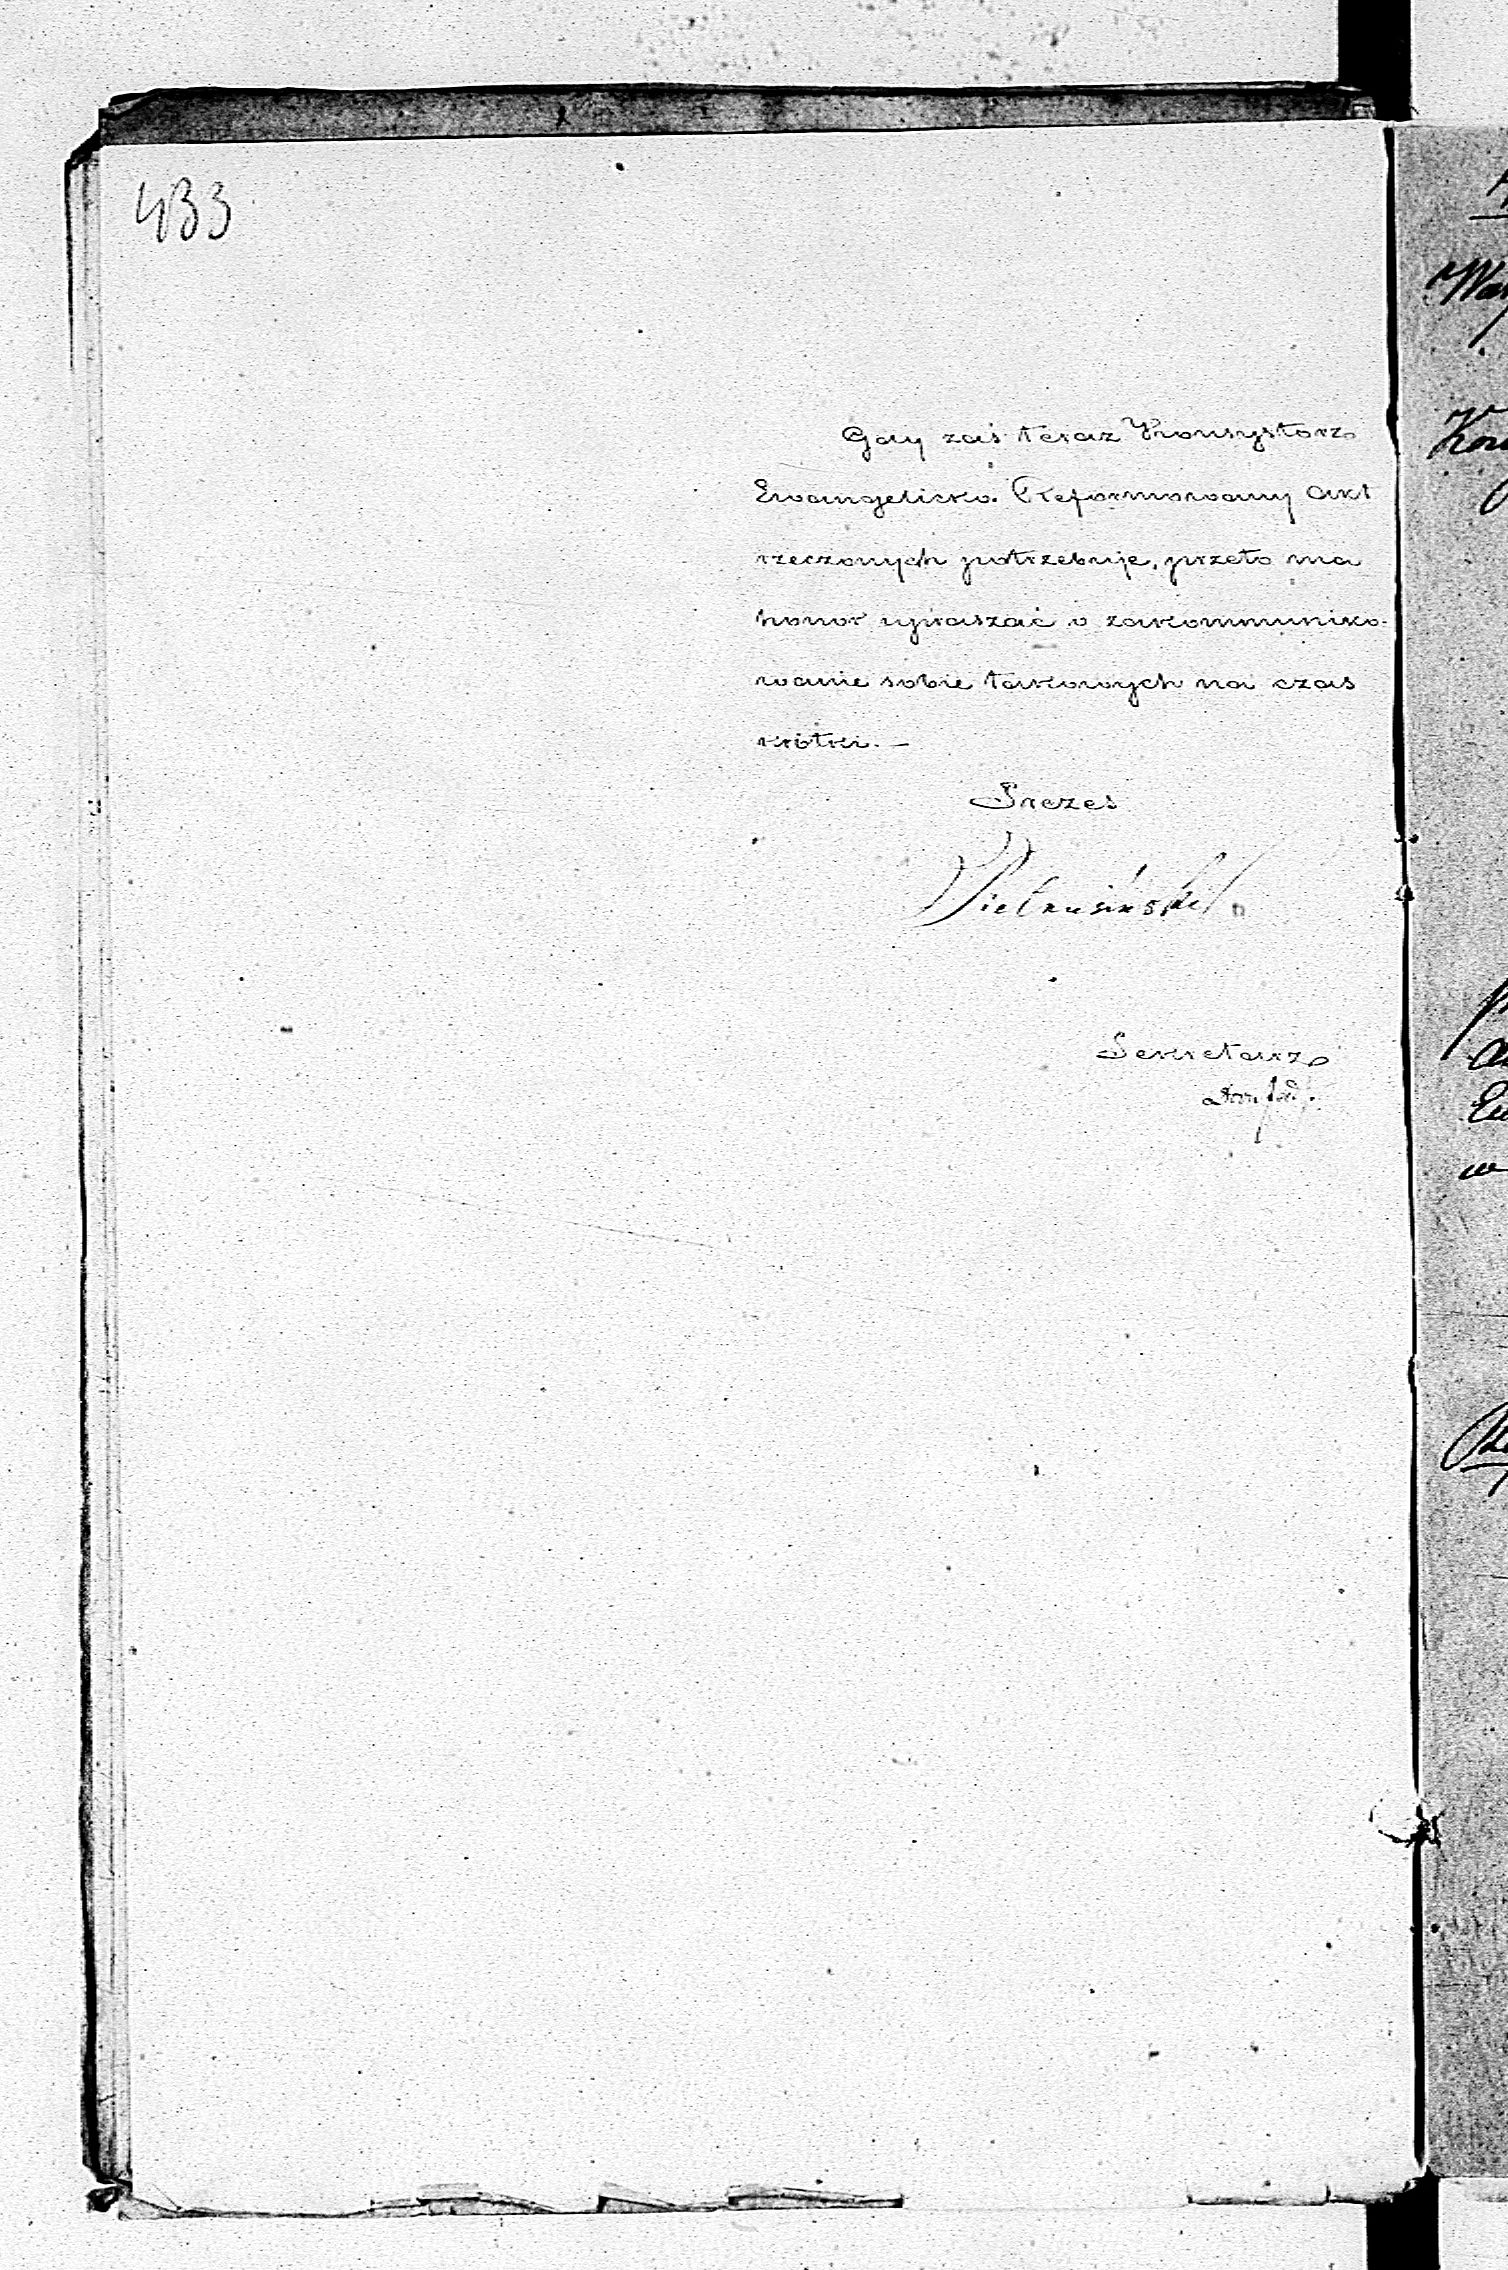 433
Gdy zaś teraz Konsystorz
Ewangelicko. Reformowany akt
rzeczonych potrzebuje, przeto ma
honor upraszać o zakommuniko-
wanie sobie takowych na czas
krótki. —
Prezes
Pietrusiński
Sekretarz